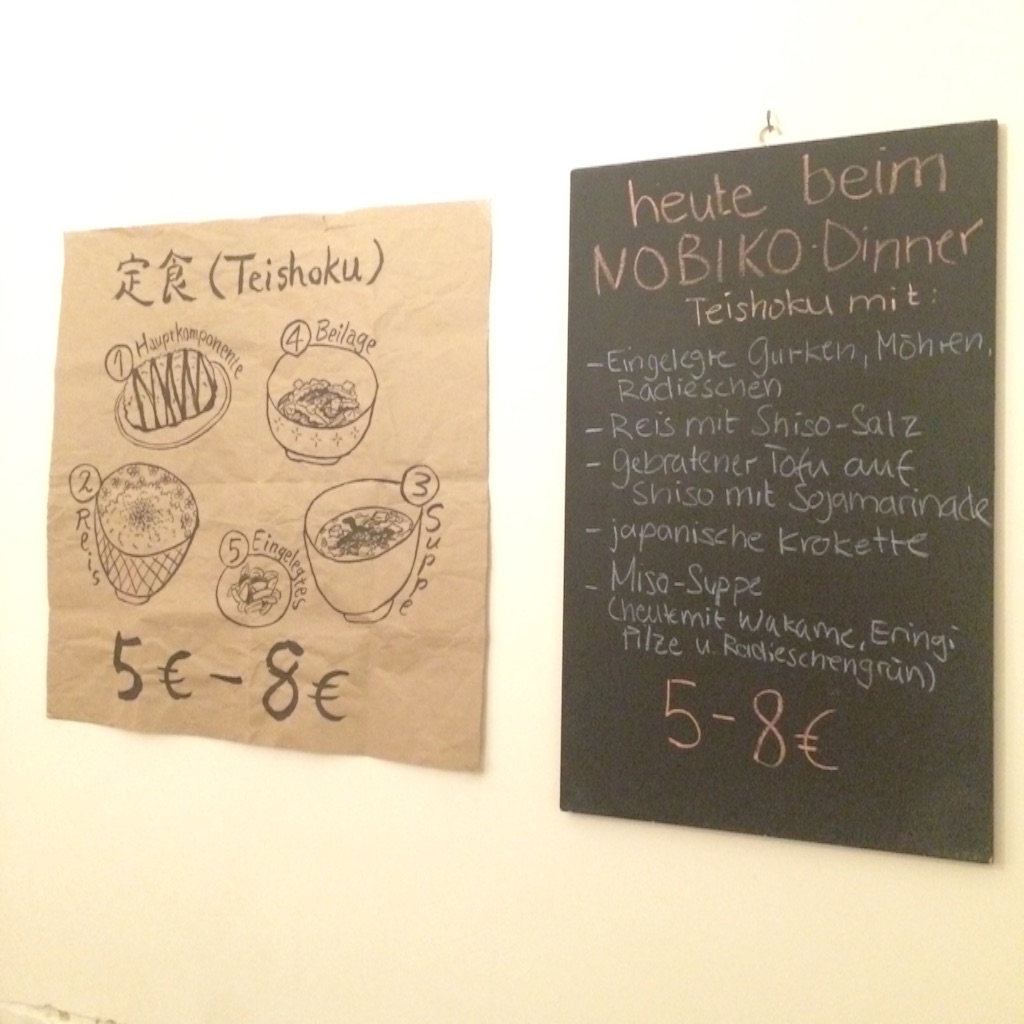 定食 (Teishoku)
1 Hauptkomponente
4 Beilage
2 Reis
3 Suppe
5 Eingelegtes
5€ – 8€
heute beim
NOBIKO-Dinner
Teishoku mit:
- Eingelegte Gurken, Möhren,
Radieschen
- Reis mit Shiso-Salz
- gebratener Tofu auf
Shiso mit Sojamarinade
- japanische Krokette
- Miso-Suppe
(heute mit Wakame, Eringi
Pilze u. Radieschengrün)
5-8€